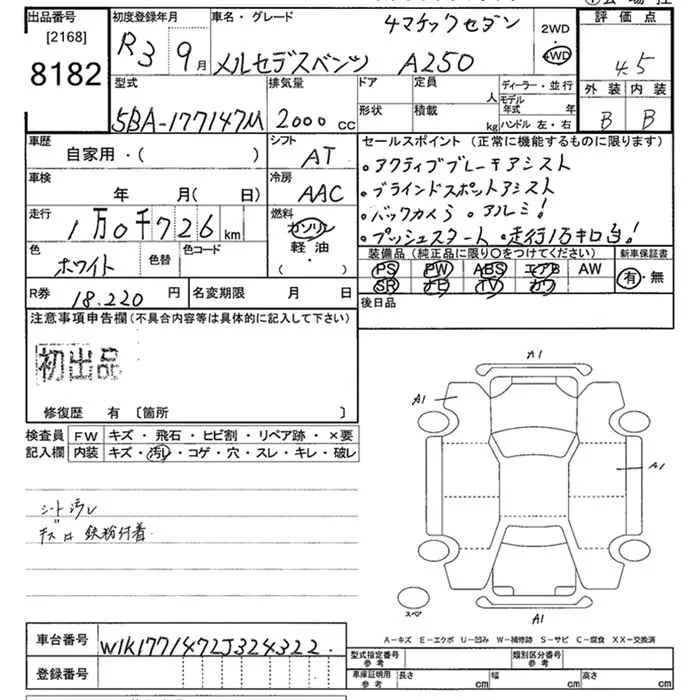 出品番号 初度登録年月 車名・グレード 4マチックセダン 2WD 評価点
[2168]
8182 R3 9月 メルセデスベンツ A250 4WD 4.5
型式 排気量 ドア 定員 人 ディーラー・並行 外装 内装
5BA-177147M 2000cc 形状 積載 kg モデル年式 年 ハンドル 左・右 B B
車歴 シフト セールスポイント(正常に機能するものに限ります)
自家用・( ) AT 。アクティブブレーキアシスト
車検 冷房 。ブラインドスポットアシスト
年 月(日) AAC 。バックカメラ 。アルミ!
走行 燃料 。プッシュスタート 。走行1万キロ台!
1万0千726km ガソリン
色 色替 色コード 軽・油 装備品(純正品に限り〇をつけてください) 新車保証書
ホワイト (・) PS PW ABS エアB AW 有・無
R券 18.220円 名変期限 月 日 SR ナビ TV カワ
注意事項申告欄(不具合内容等は具体的に記入して下さい) 後日品
初出品
修復歴 有〔箇所 〕
検査員 FW キズ・飛石・ヒビ割・リペア跡・×要
記入欄 内装 キズ・汚レ・コゲ・穴・スレ・キレ・破レ
A1
A1
A1
シート汚レ
鉄粉付着
スペア
A1
A-キズ E-エクボ U-凹み W-補修跡 S-サビ C-腐食 XX-交換済
車台番号 W1K1771472J324322.
登録番号
型式指定番号 参考 類別区分番号 参考
車庫証明用 参考 長さ cm 幅 cm 高さ cm